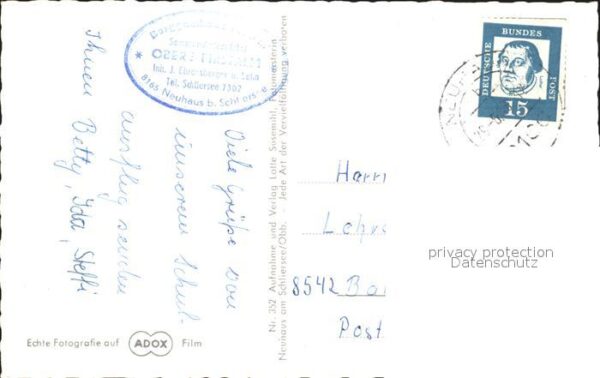 Berggasthaus
OBERE FIRSTALM
Inh. J. Ebersberger u. Sohn
Tel. Schliersee 7302
8165 Neuhaus b. Schliersee
Viele Grüße von
unserem Schul-
ausflug senden
Ihnen Betty, Ida, Steffi
Echte Fotografie auf ADOX Film
Nr. 352 Aufnahme und Verlag Lotte Susemihl, Fotomeisterin
Neuhaus am Schliersee/Obb. - Jede Art der Vervielfältigung verboten
DEUTSCHE BUNDESPOST
15
Herrn
Lehr
8542
Post
privacy protection
Datenschutz